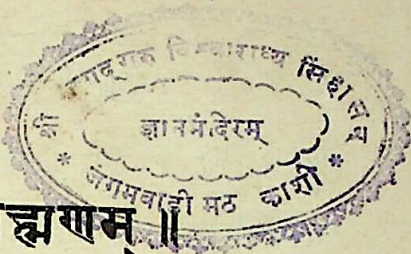 श्री जगद्गुरु विश्वाराध्य सिंहासन
ज्ञानमंदिरम्
* जंगमवाडी मठ काशी *
ह्मणम् ॥